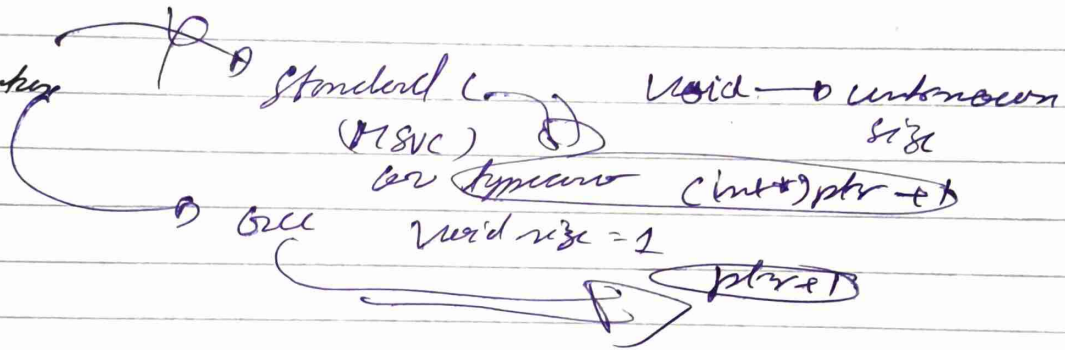 Standard C void → unknown
(MSVC) size
typecast (int*)ptr + 1
GCC void size = 1
ptr + 1